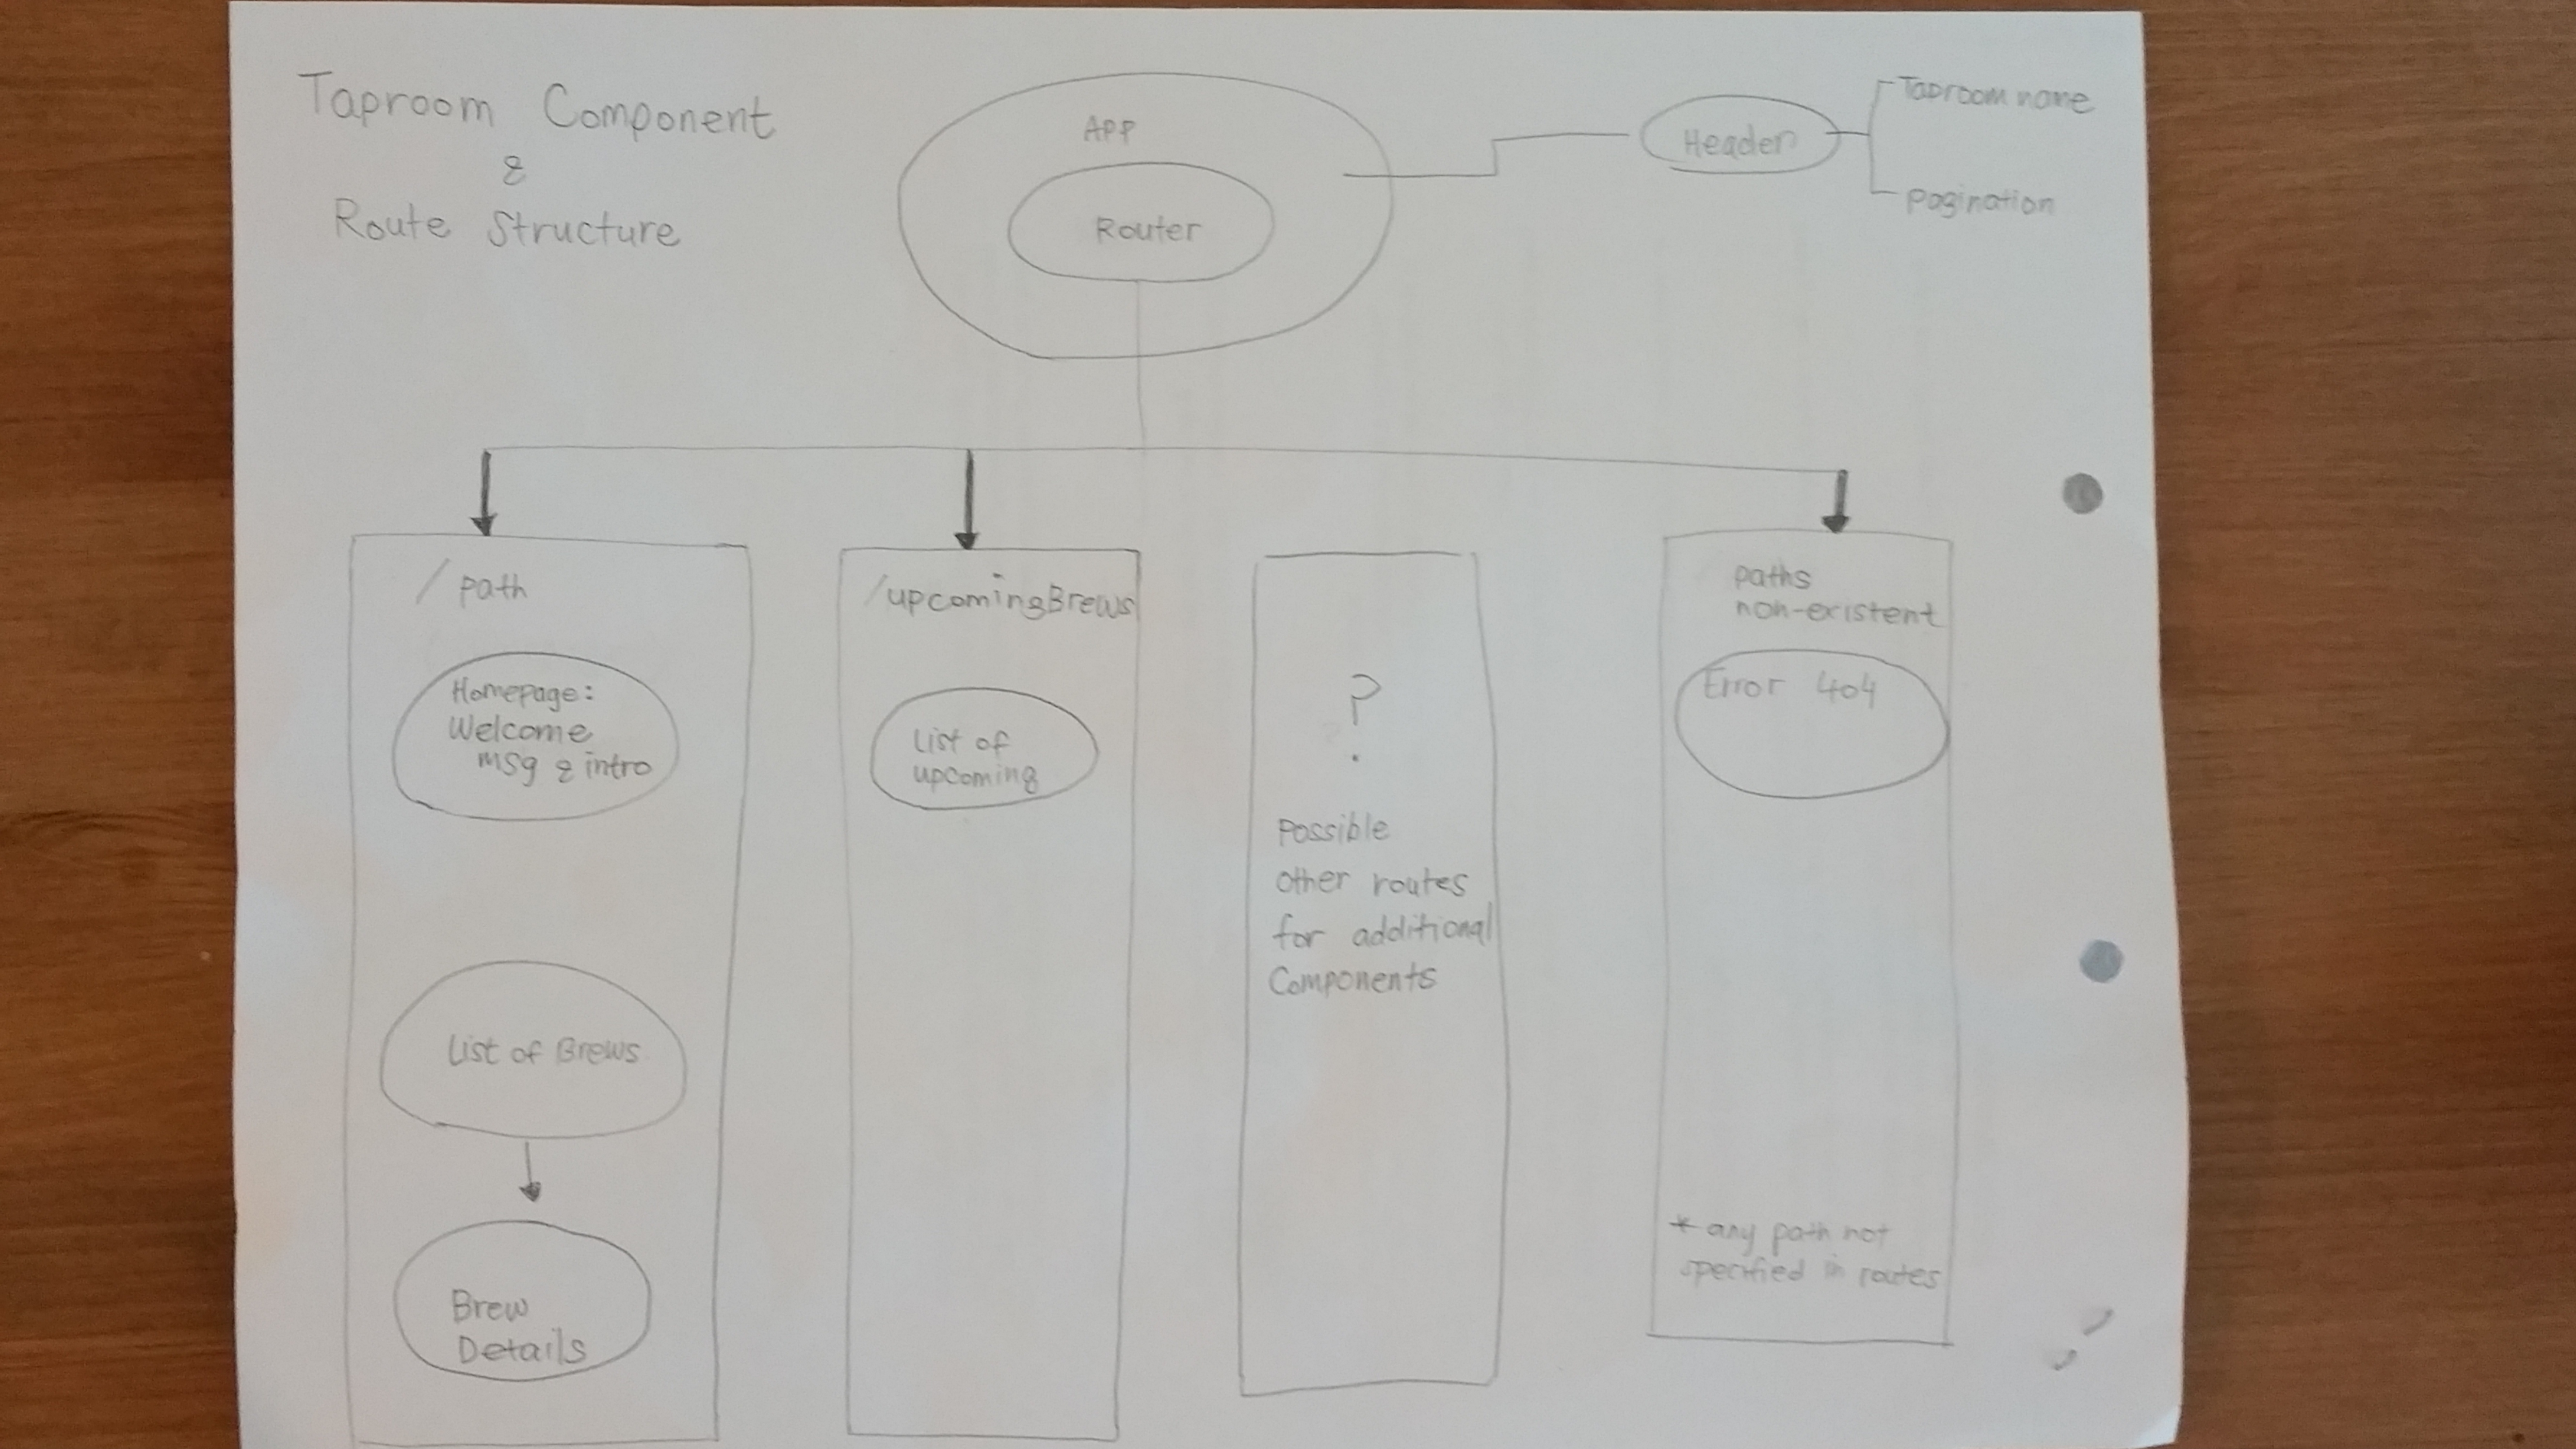 Taproom Component
&
Route Structure
APP
Router
Header
Taproom name
pagination
/path
Homepage:
Welcome
msg & intro
List of Brews
Brew
Details
/upcomingBrews
List of
upcoming
?
Possible
other routes
for additional
Components
paths
non-existent
Error 404
* any path not
specified in routes